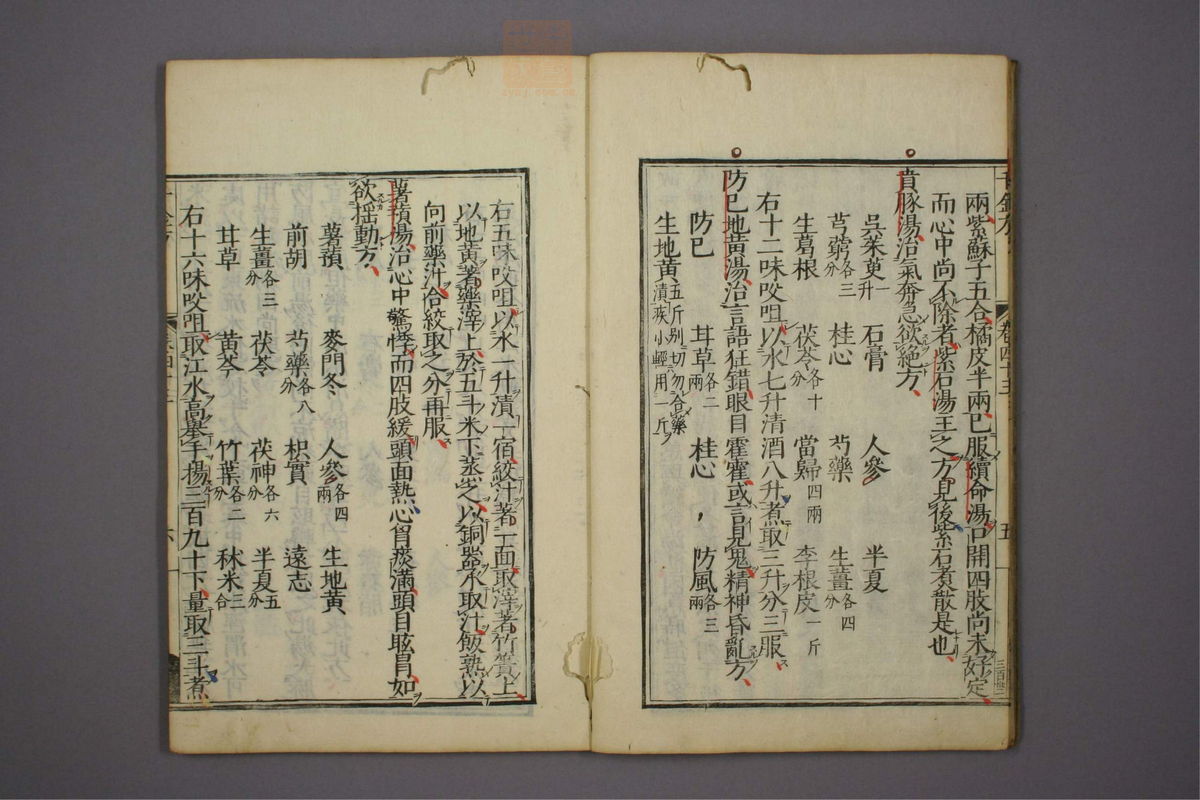 兩紫蘇子五合橘皮半兩已服續命湯口開四肢尚未好定
而心中尚不除者紫石湯主之方見後紫石煑散是也
賁豚湯治氣奔急欲絶方
吳茱萸一升 石膏 人參 半夏
芎藭各三分 桂心 芍藥 生薑各四分
生葛根 茯苓各十分 當歸四兩 李根皮一斤
右十二味㕮咀以水七升清酒八升煮取三升分三服
防已地黃湯治言語狂錯眼目霍霍或言見鬼精神昏亂方
防已 甘草各二兩 桂心 防風各三兩
生地黃五斤别切勿合藥漬疾小輕用一斤
右五味㕮咀以水一升漬一宿絞汁著一面取滓著竹簀上
以地黃著藥滓上於五斗米下蒸之以銅器承取汁飯熟以
向前藥汁合絞取之分再服
薯蕷湯治心中驚悸而四肢緩頭面熱心胷痰滿頭目眩冒如
欲揺動方
薯蕷 麥門冬 人參各四兩 生地黃
前胡 芍藥各八分 枳實 遠志
生薑各三分 茯苓 茯神各六分 半夏五分
甘草 黃芩 竹葉各二分 秫米三合
右十六味㕮咀取江水高舉手揚三百九十下量取三斗煮